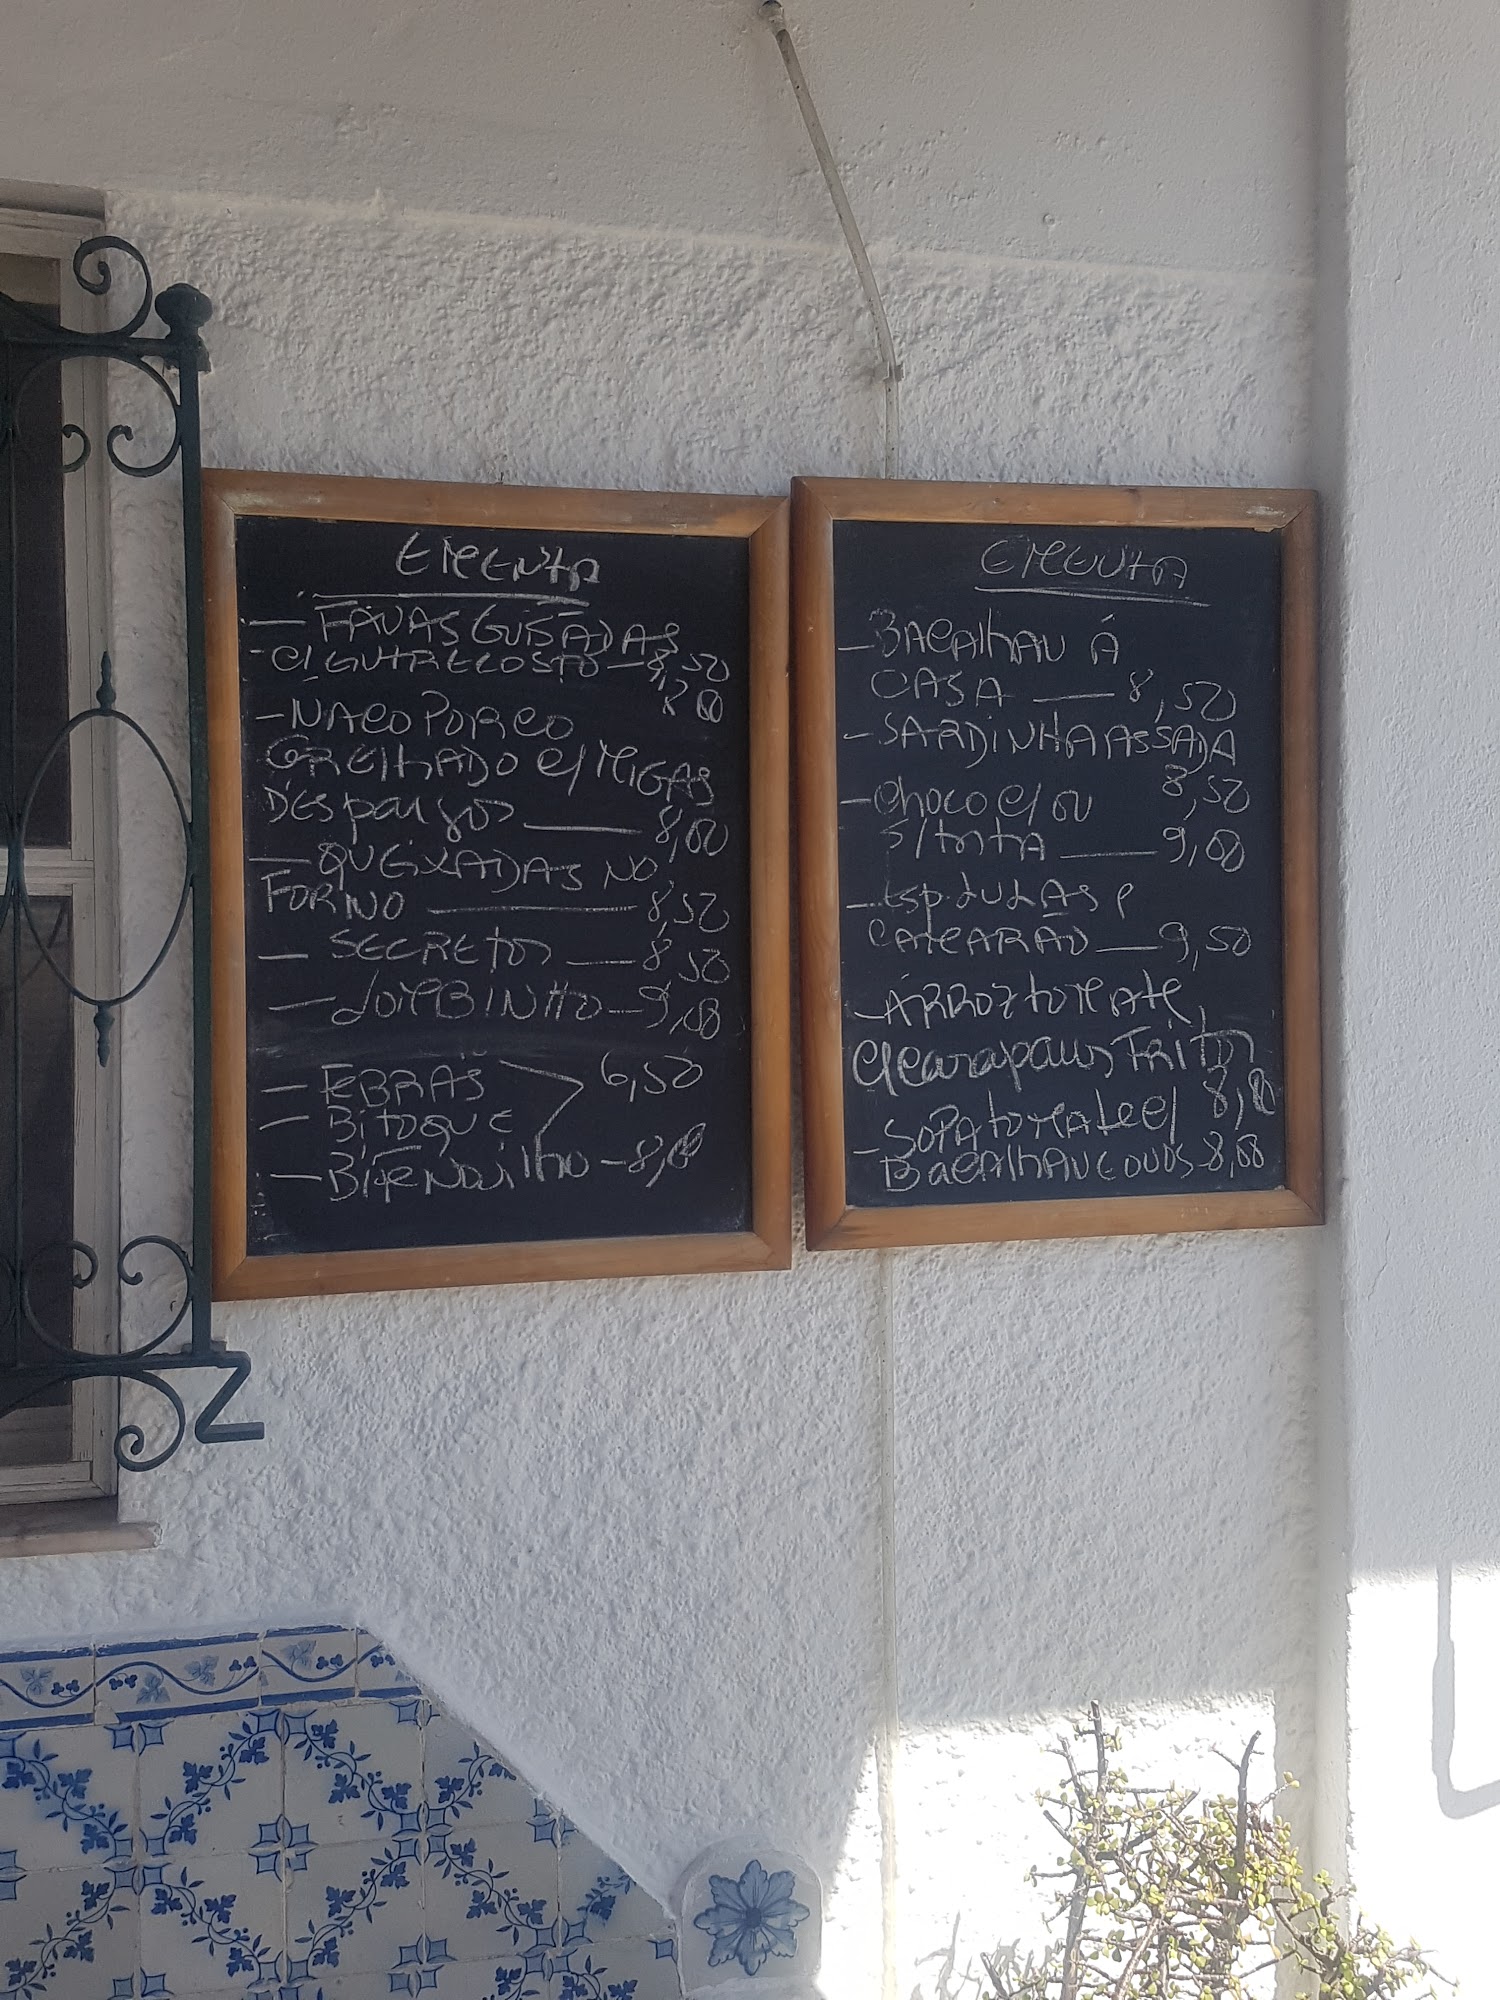 EMENTA
— FAVAS GUISADAS
c/ ENTRECOSTO — 8,50
- NACO PORCO
GRELHADO c/ MIGAS
D'ESpargos — 8,00
— QUEIXADAS NO
FORNO — 8,50
— SECRETOS — 8,50
— LOMBINHO — 9,00
— FEBRAS 6,50
— BiTOQUE
— BIFE NOVILHO — 8,00
EMENTA
- BACALHAU Á
CASA — 8,50
- SARDINHA ASSADA
8,50
- CHOCO c/ OU
S/ tinta — 9,00
- ESPETULAS
CAMARÃO — 9,50
- ARROZ TOMATE
c/ carapaus Fritos
8,00
- SOPA tomate c/
BACALHAU E OVOS - 8,00